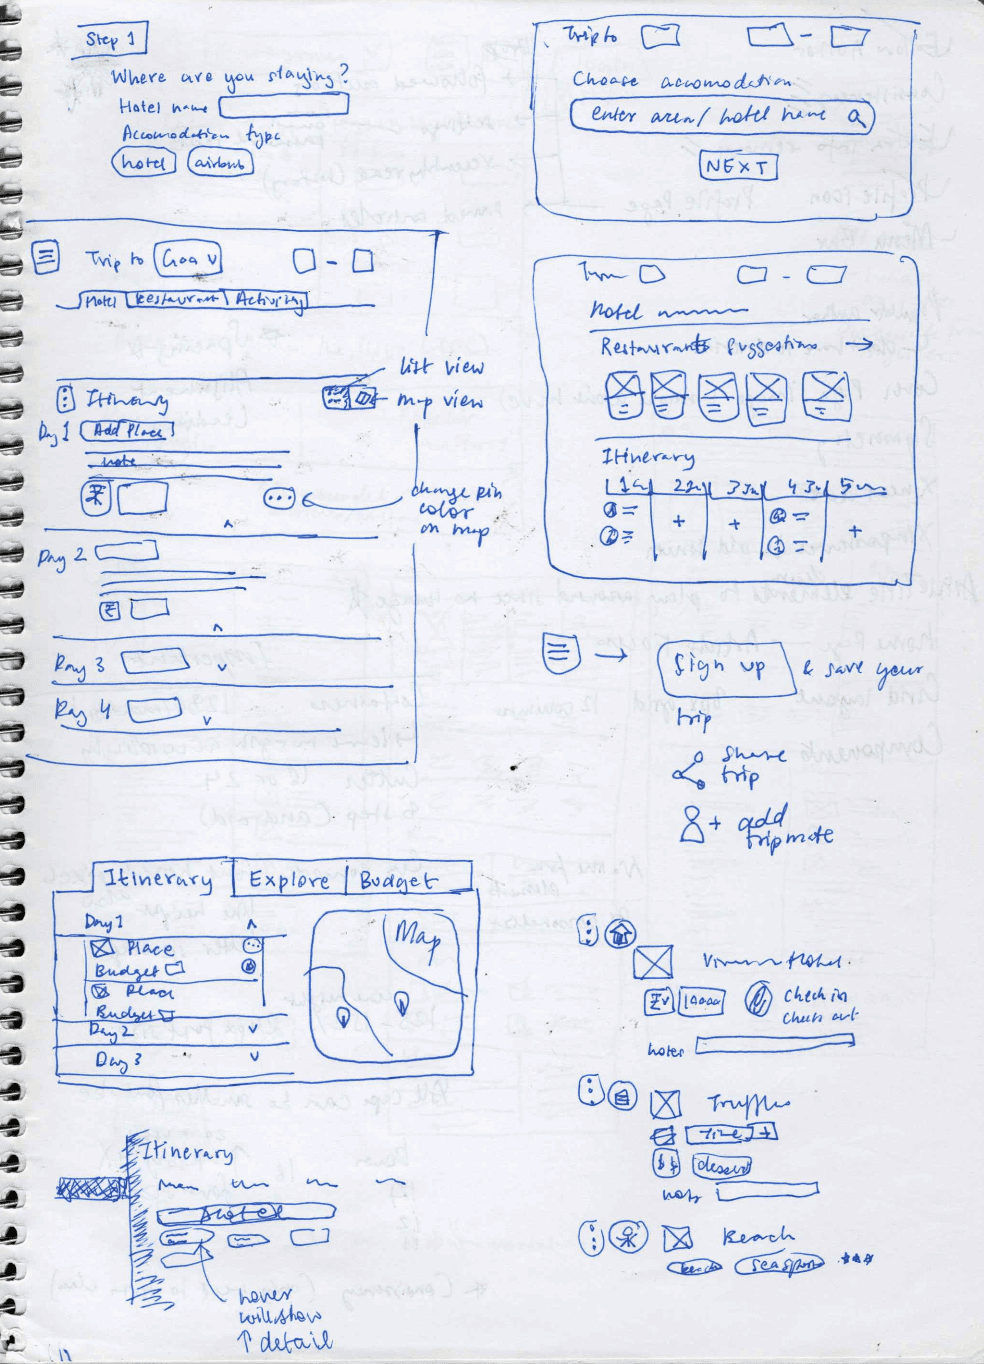 Step 1
Where are you staying?
Hotel name
Accomodation type
hotel airbnb
Trip to
Choose accomodation
enter area/ hotel name
NEXT
Trip to Goa v
Hotel Restaurant Activity
list view
map view
Itinerary
Day 1 Add Place
note
change pin
color
on map
Day 2
Day 3
Day 4
Hotel
Restaurants Suggestions →
Itinerary
1 2 3 4 5
1 + + 2 +
2 1
→ Sign up & save your
trip
share
trip
+ add
tripmate
Itinerary Explore Budget
Day 1
Place
Budget
Place
Budget
Day 2
Day 3
Map
Hotel
Check in
Check out
notes
Truffles
Time +
$$ dessert
note
Beach
beach seasport ***
Itinerary
Hotel
hover
will show
↑ detail